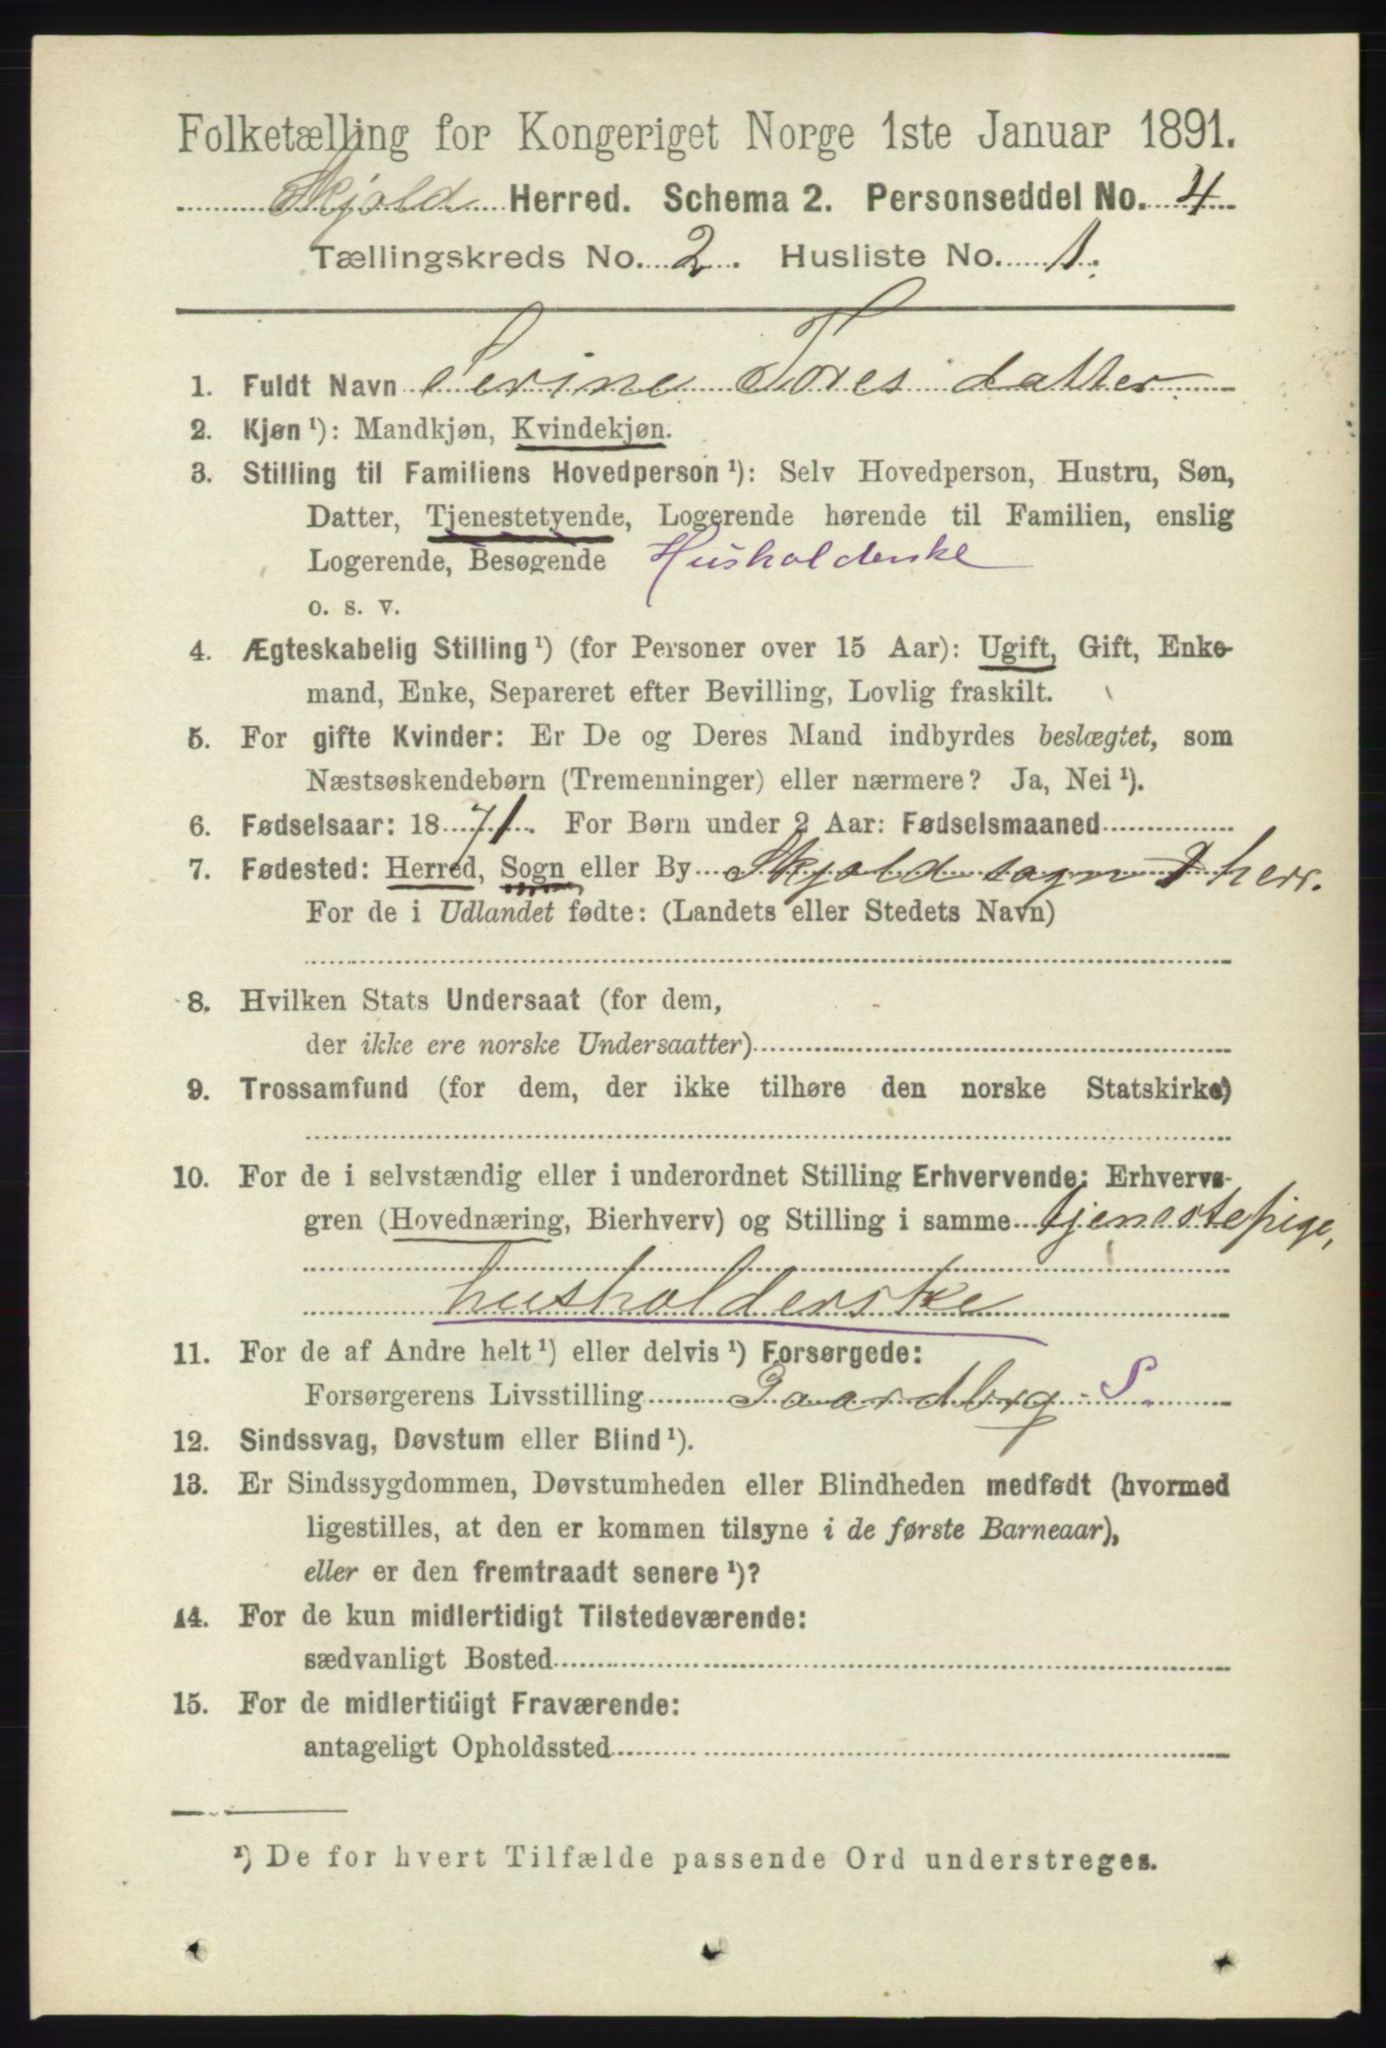 Folketælling for Kongeriget Norge 1ste Januar 1891.
Skjold Herred. Schema 2. Personseddel No. 4
Tællingskreds No. 2. Husliste No. 1.
1. Fuldt Navn Serine Tores datter
2. Kjøn ¹): Mandkjøn, Kvindekjøn.
3. Stilling til Familiens Hovedperson ¹): Selv Hovedperson, Hustru, Søn,
Datter, Tjenestetyende, Logerende hørende til Familien, enslig
Logerende, Besøgende Husholderske
o. s. v.
4. Ægteskabelig Stilling ¹) (for Personer over 15 Aar): Ugift, Gift, Enke-
mand, Enke, Separeret efter Bevilling, Lovlig fraskilt.
5. For gifte Kvinder: Er De og Deres Mand indbyrdes beslægtet, som
Næstsøskendebørn (Tremenninger) eller nærmere? Ja, Nei ¹).
6. Fødselsaar: 1871. For Børn under 2 Aar: Fødselsmaaned
7. Fødested: Herred, Sogn eller By Skjold sogn & herr.
For de i Udlandet fødte: (Landets eller Stedets Navn)
8. Hvilken Stats Undersaat (for dem,
der ikke ere norske Undersaatter)
9. Trossamfund (for dem, der ikke tilhøre den norske Statskirke)
10. For de i selvstændig eller i underordnet Stilling Erhvervende: Erhvervs-
gren (Hovednæring, Bierhverv) og Stilling i samme tjenestepige,
husholderske
11. For de af Andre helt ¹) eller delvis ¹) Forsørgede:
Forsørgerens Livsstilling Gaardbrg S.
12. Sindssvag, Døvstum eller Blind ¹).
13. Er Sindssygdommen, Døvstumheden eller Blindheden medfødt (hvormed
ligestilles, at den er kommen tilsyne i de første Barneaar),
eller er den fremtraadt senere ¹)?
14. For de kun midlertidigt Tilstedeværende:
sædvanligt Bosted
15. For de midlertidigt Fraværende:
antageligt Opholdssted
¹) De for hvert Tilfælde passende Ord understreges.